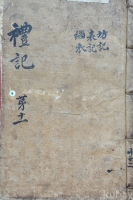 禮記
苐十一
坊記
表記
緇衣